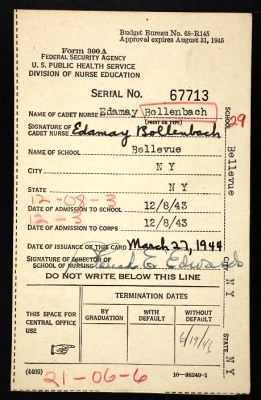 Budget Bureau No. 68-R145
Approval expires August 31, 1945
Form 300A
FEDERAL SECURITY AGENCY
U. S. PUBLIC HEALTH SERVICE
DIVISION OF NURSE EDUCATION
SERIAL NO. 67713
NAME OF CADET NURSE Edamay Bollenbach
(PRINT OR TYPE)
SIGNATURE OF CADET NURSE Edamay Bollenbach
NAME OF SCHOOL Bellevue
CITY N Y
STATE N Y
12-08-3
DATE OF ADMISSION TO SCHOOL 12/8/43
12-3
DATE OF ADMISSION TO CORPS 12/8/43
DATE OF ISSUANCE OF THIS CARD March 27, 1944
SIGNATURE OF DIRECTOR OF SCHOOL OF NURSING E. Edwards
DO NOT WRITE BELOW THIS LINE
THIS SPACE FOR CENTRAL OFFICE USE
TERMINATION DATES
BY GRADUATION
WITH DEFAULT
WITHOUT DEFAULT
(4409)
16-38249-1
21-06-6
SCHOOL Bellevue
29
CITY N Y
STATE N Y